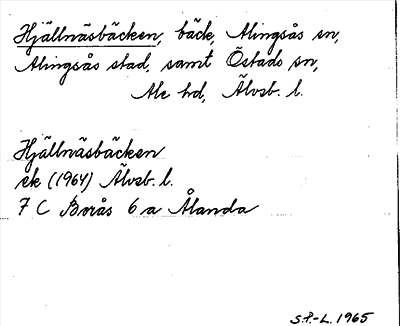 Hjällnäsbäcken, bäck, Alingsås sn,
Alingsås stad, samt Östads sn,
Ale hd, Älvsb. l.
Hjällnäsbäcken
ek (1964) Älvsb. l.
7 C Borås 6 a Ålanda
S.P.-L. 1965